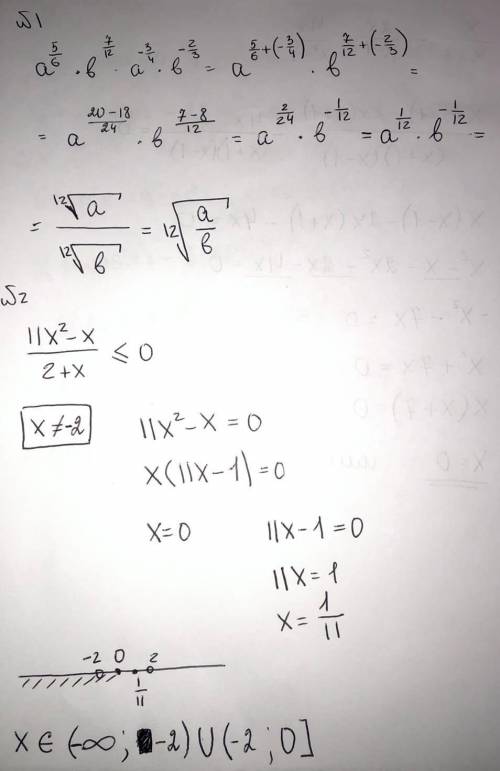 №1
a^{5/6} · b^{7/12} · a^{-3/4} · b^{-2/3} = a^{5/6+(-3/4)} · b^{7/12+(-2/3)} =
= a^{20-18/24} · b^{7-8/12} = a^{2/24} · b^{-1/12} = a^{1/12} · b^{-1/12} =
= ¹²√a / ¹²√b = ¹²√(a/b)
№2
11x²-x / 2+x ≤ 0
x≠-2 11x²-x=0
x(11x-1)=0
x=0 11x-1=0
11x=1
x=1/11
-2 0 2
1/11
x∈(-∞;-2)∪(-2;0]